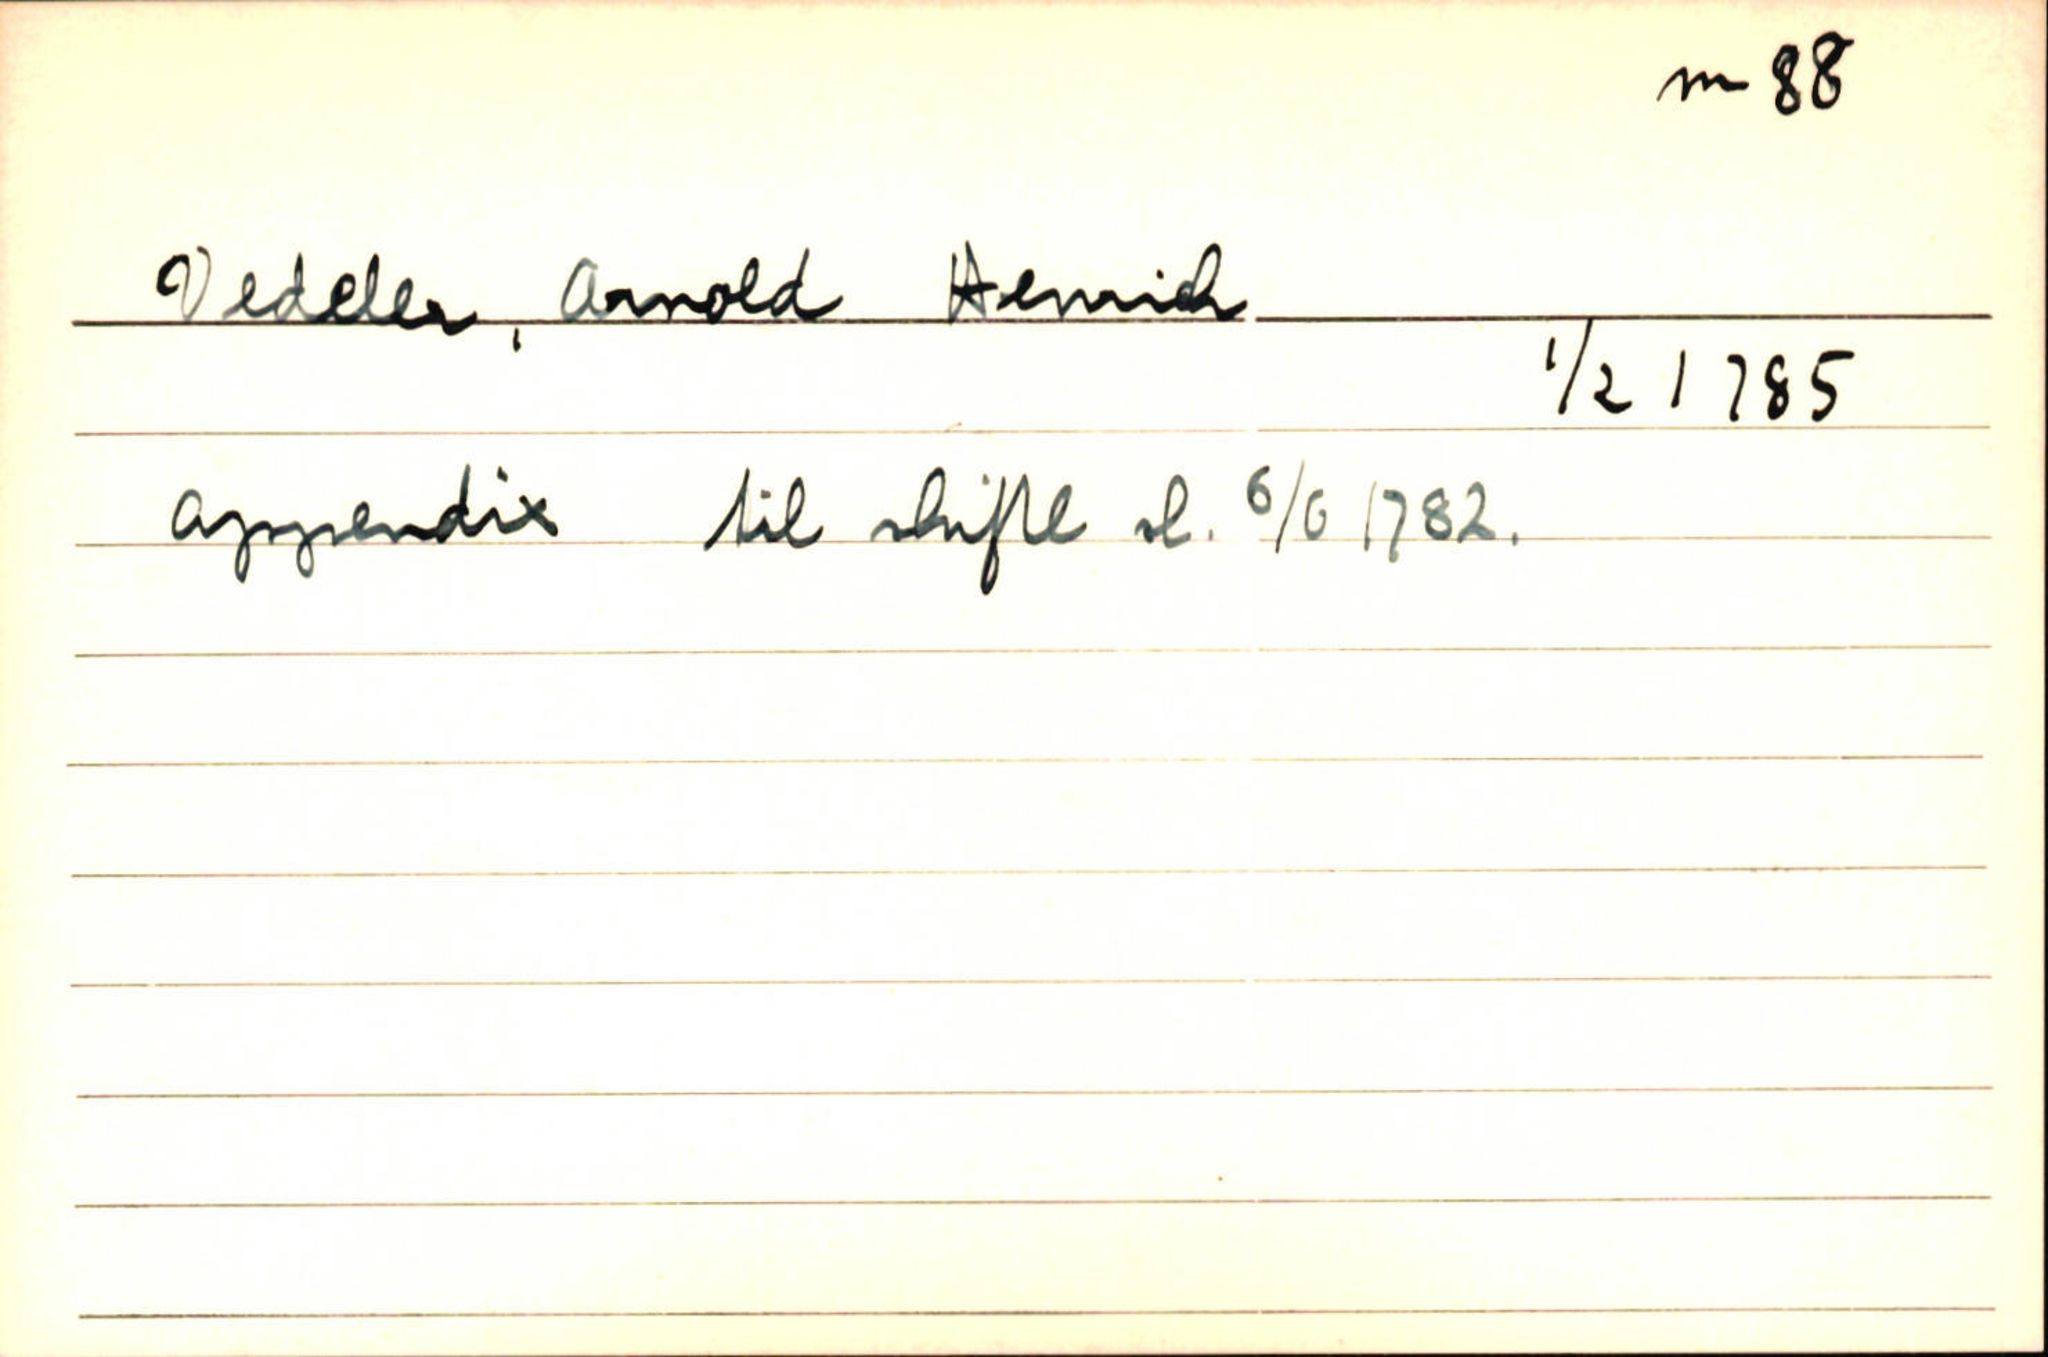 m 88
Vedeler, Arnold Henrich
1/2 1785
appendix til skifte sl. 6/6 1782.